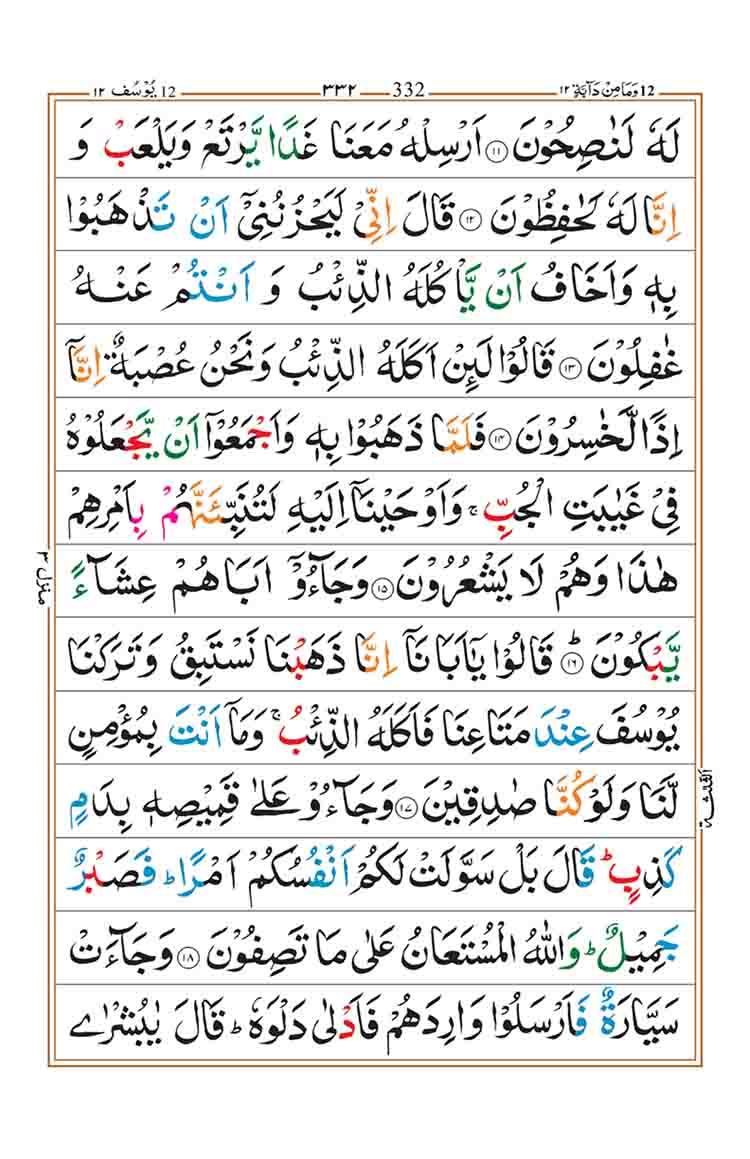 12 وَمَا مِنْ دَآبَّةٍ ١٢ 332 ٣٣٢ 12 يُوْسُف ١٢
لَهٗ لَنٰصِحُوْنَ ۝١١ اَرْسِلْهُ مَعَنَا غَدًا يَّرْتَعْ وَيَلْعَبْ وَ
اِنَّا لَهٗ لَحٰفِظُوْنَ ۝١٢ قَالَ اِنِّيْ لَيَحْزُنُنِيْۤ اَنْ تَذْهَبُوْا
بِهٖ وَاَخَافُ اَنْ يَّاْكُلَهُ الذِّئْبُ وَ اَنْتُمْ عَنْهُ
غٰفِلُوْنَ ۝١٣ قَالُوْا لَىِٕنْ اَكَلَهُ الذِّئْبُ وَنَحْنُ عُصْبَةٌ اِنَّاۤ
اِذًا لَّخٰسِرُوْنَ ۝١٤ فَلَمَّا ذَهَبُوْا بِهٖ وَاَجْمَعُوْۤا اَنْ يَّجْعَلُوْهُ
فِيْ غَيٰبَتِ الْجُبِّ ۚ وَاَوْحَيْنَاۤ اِلَيْهِ لَتُنَبِّئَنَّهُمْ بِاَمْرِهِمْ
هٰذَا وَهُمْ لَا يَشْعُرُوْنَ ۝١٥ وَجَآءُوْۤ اَبَاهُمْ عِشَآءً
يَّبْكُوْنَ ۝١٦ؕ قَالُوْا يٰۤاَبَانَاۤ اِنَّا ذَهَبْنَا نَسْتَبِقُ وَتَرَكْنَا
يُوْسُفَ عِنْدَ مَتَاعِنَا فَاَكَلَهُ الذِّئْبُ ۚ وَمَاۤ اَنْتَ بِمُؤْمِنٍ
لَّنَا وَلَوْ كُنَّا صٰدِقِيْنَ ۝١٧ وَجَآءُوْ عَلٰى قَمِيْصِهٖ بِدَمٍ
كَذِبٍ ؕ قَالَ بَلْ سَوَّلَتْ لَكُمْ اَنْفُسُكُمْ اَمْرًا ؕ فَصَبْرٌ
جَمِيْلٌ ؕ وَاللّٰهُ الْمُسْتَعَانُ عَلٰى مَا تَصِفُوْنَ ۝١٨ وَجَآءَتْ
سَيَّارَةٌ فَاَرْسَلُوْا وَارِدَهُمْ فَاَدْلٰى دَلْوَهٗ ؕ قَالَ يٰبُشْرٰى
منزل ٣
الثلثة